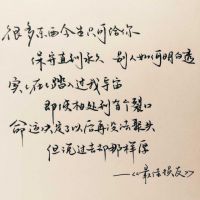 很多东西今生只可给你
保守直到永久 别人如何明白透
实实在在踏入过我宇宙
即使相处到有个裂口
命运决定了以后再没法聚头
但说过去却那样厚
——《最佳损友》